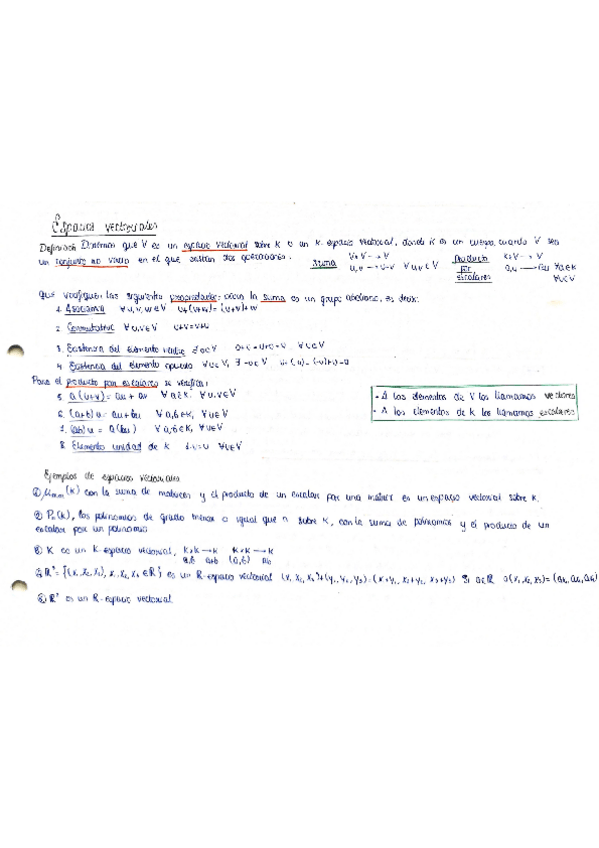 Espacios vectoriales
Definición Diremos que V es un espacio vectorial sobre K o un K-espacio vectorial, donde K es un cuerpo cuando V sea
un conjunto no vacío en el que existan dos operaciones. Suma V×V → V Producto por escalares K×V → V
u,v → u+v ∀u,v∈V a,u → au ∀a∈K ∀u∈V
Que verifiquen las siguientes propiedades: para la suma es un grupo abeliano, es decir:
1. Asociativa ∀u,v,w∈V u+(v+w)=(u+v)+w
2. Conmutativa ∀u,v∈V u+v=v+u
3. Existencia del elemento neutro
4. Existencia del elemento opuesto ∀u∈V, ∃-u∈V
Para el producto por escalares se verifica:
5. a(u+v)=au+av ∀a∈K, ∀u,v∈V
6. (a+b)u=au+bu ∀a,b∈K, ∀u∈V
7. (ab)u=a(bu) ∀a,b∈K, ∀u∈V
8. Elemento unidad de K 1·u=u ∀u∈V
- A los elementos de V los llamamos vectores
- A los elementos de K los llamamos escalares
Ejemplos de espacios vectoriales
① (K) con la suma de matrices y el producto de un escalar por una matriz es un espacio vectorial sobre K.
② Pₙ(K), los polinomios de grado menor o igual que n sobre K, con la suma de polinomios y el producto de un
escalar por un polinomio
③ K es un K-espacio vectorial, K×K → K K×K → K
a,b a+b (a,b) ab
④ R³={(x₁,x₂,x₃), x₁,x₂,x₃∈R} es un R-espacio vectorial (x₁,x₂,x₃)+(y₁,y₂,y₃)=(x₁+y₁, x₂+y₂, x₃+y₃) Si a∈R a(x₁,x₂,x₃)=(ax₁,ax₂,ax₃)
es un R-espacio vectorial.